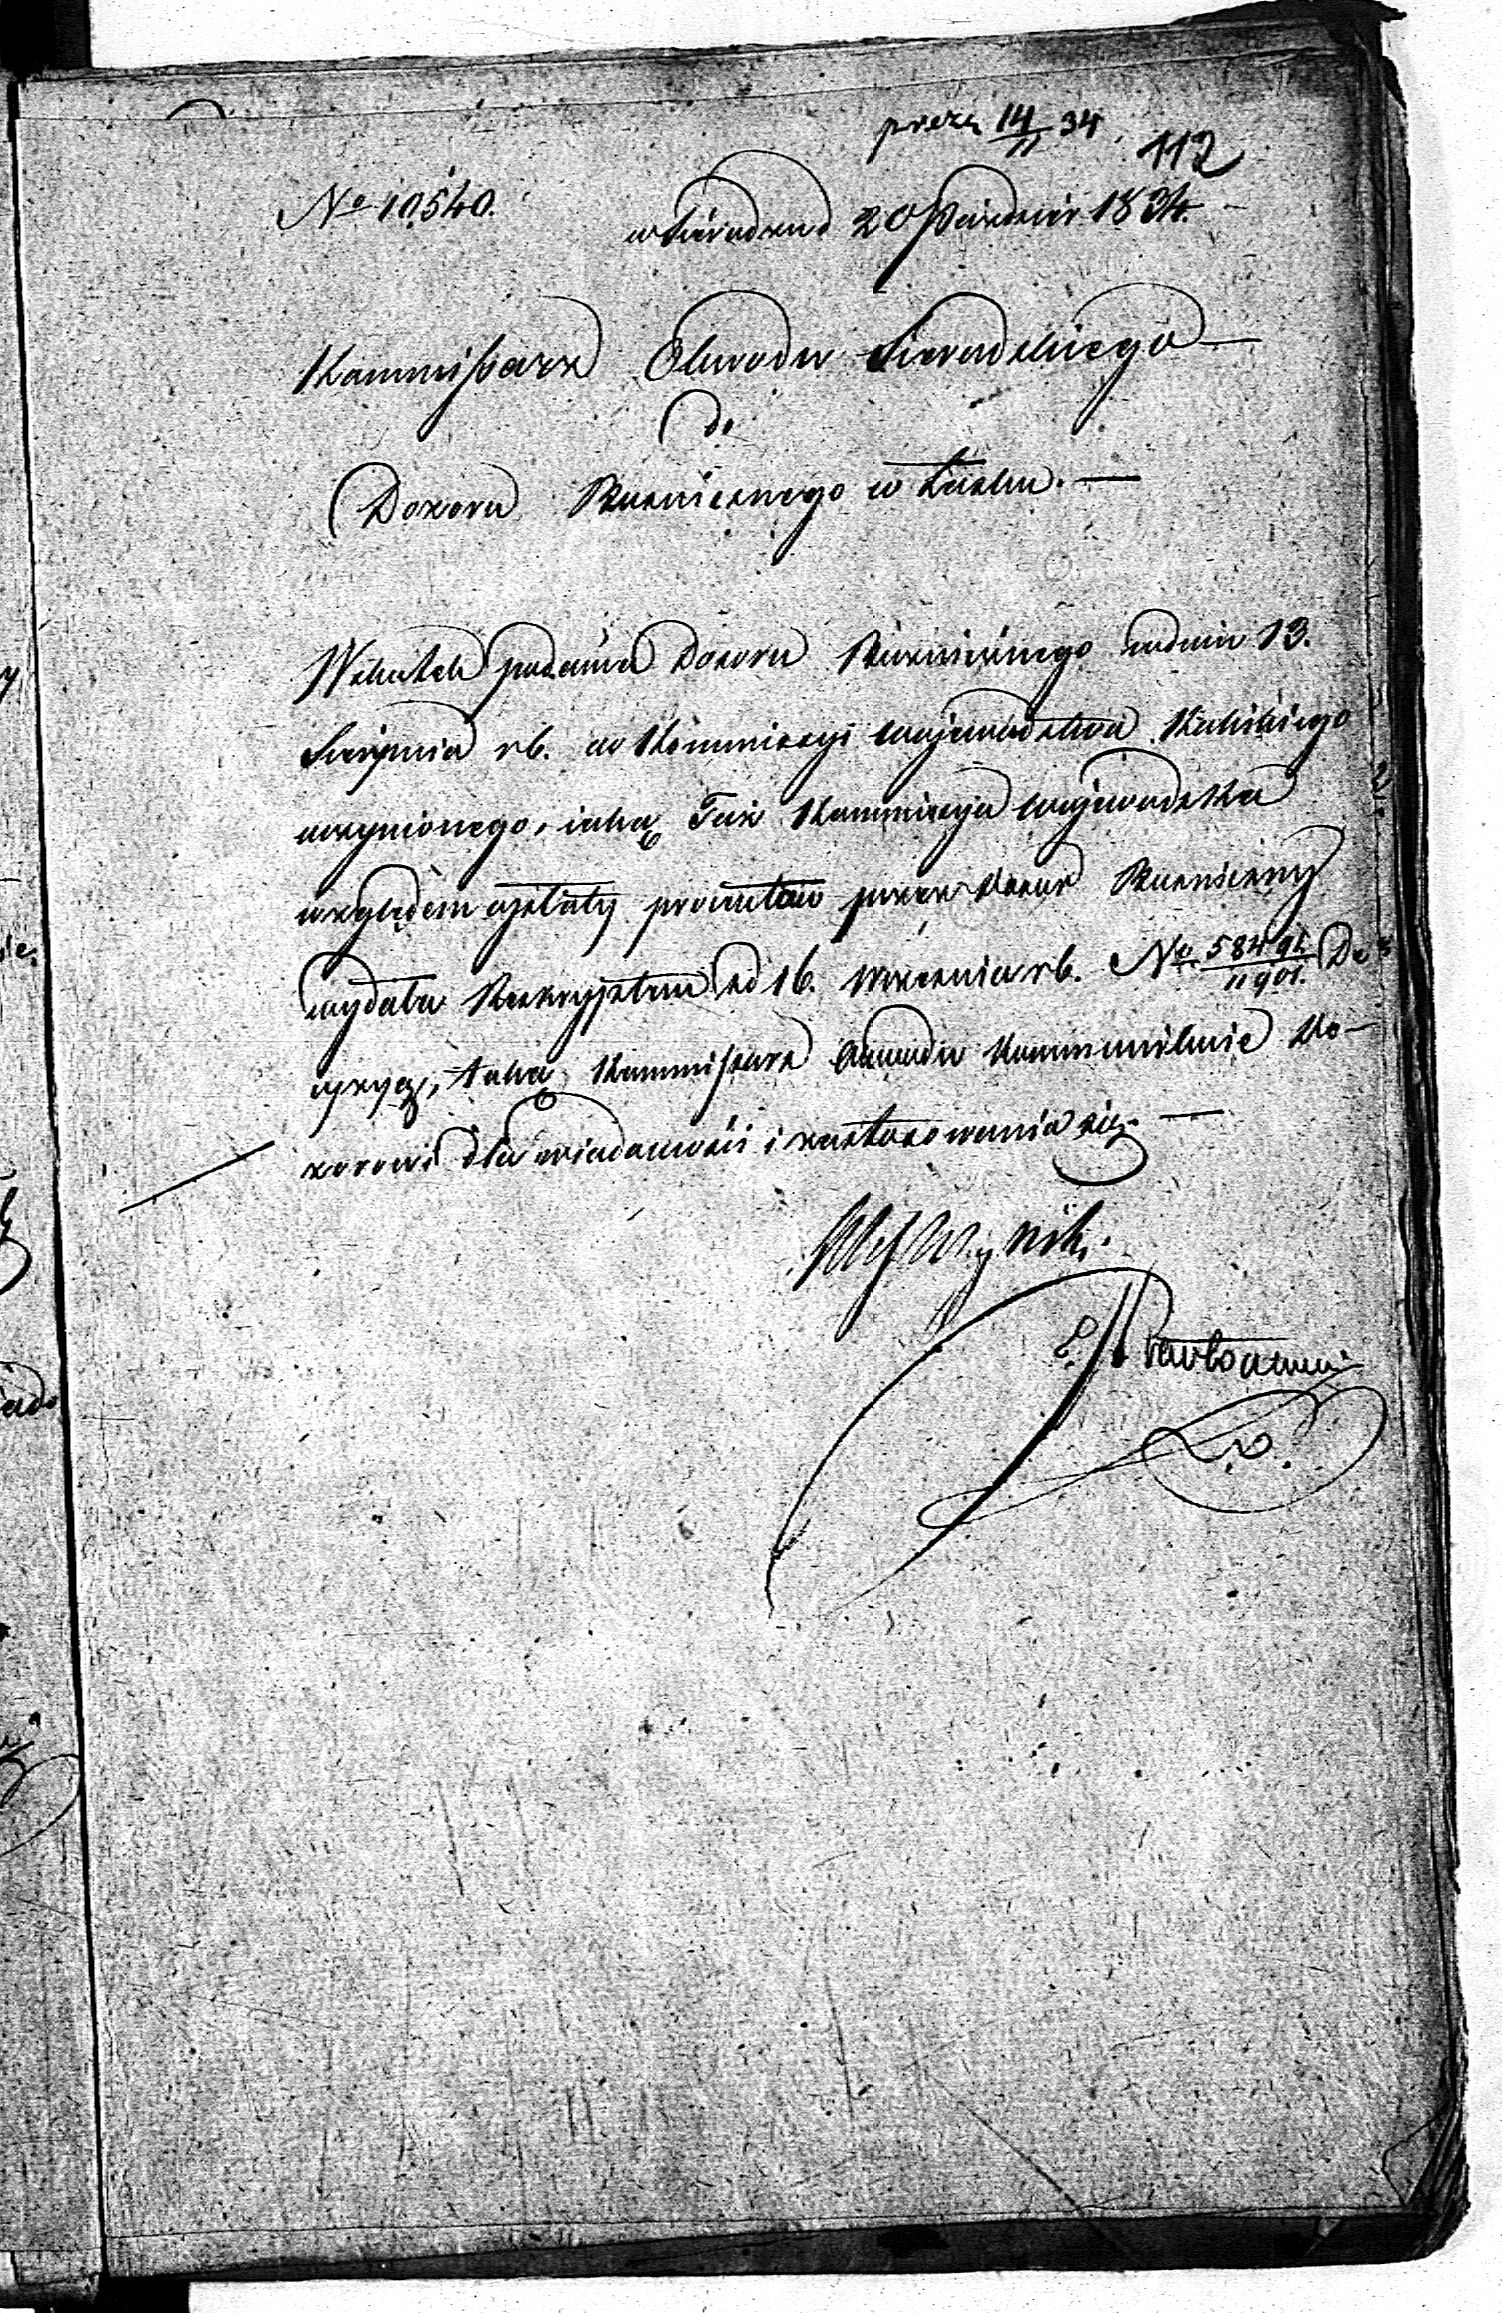 prez. 14/11 34.
112
No 10540.
w Sieradzu d 20 Paździer 1834.
Kommissarz Obwodu Sieradzkiego
do
Dozoru Bużniczego w Łasku. —
W skutek podania Dozoru Bużnicznego z dnia 13.
Sierpnia rb. do Kommissyi Wojewodztwa Kaliskiego
uczynionego, iaką Taż Kommissya Wojewodzka
względem opłaty przez Dozór Bużniczny
wydała Reskryptem z d 16. Września rb. No 58491/11901. De-
cyzyą, taką Kommissarz Obwodu kommunikuie Do-
zorowi dla wiadomości i zastosowania się. —